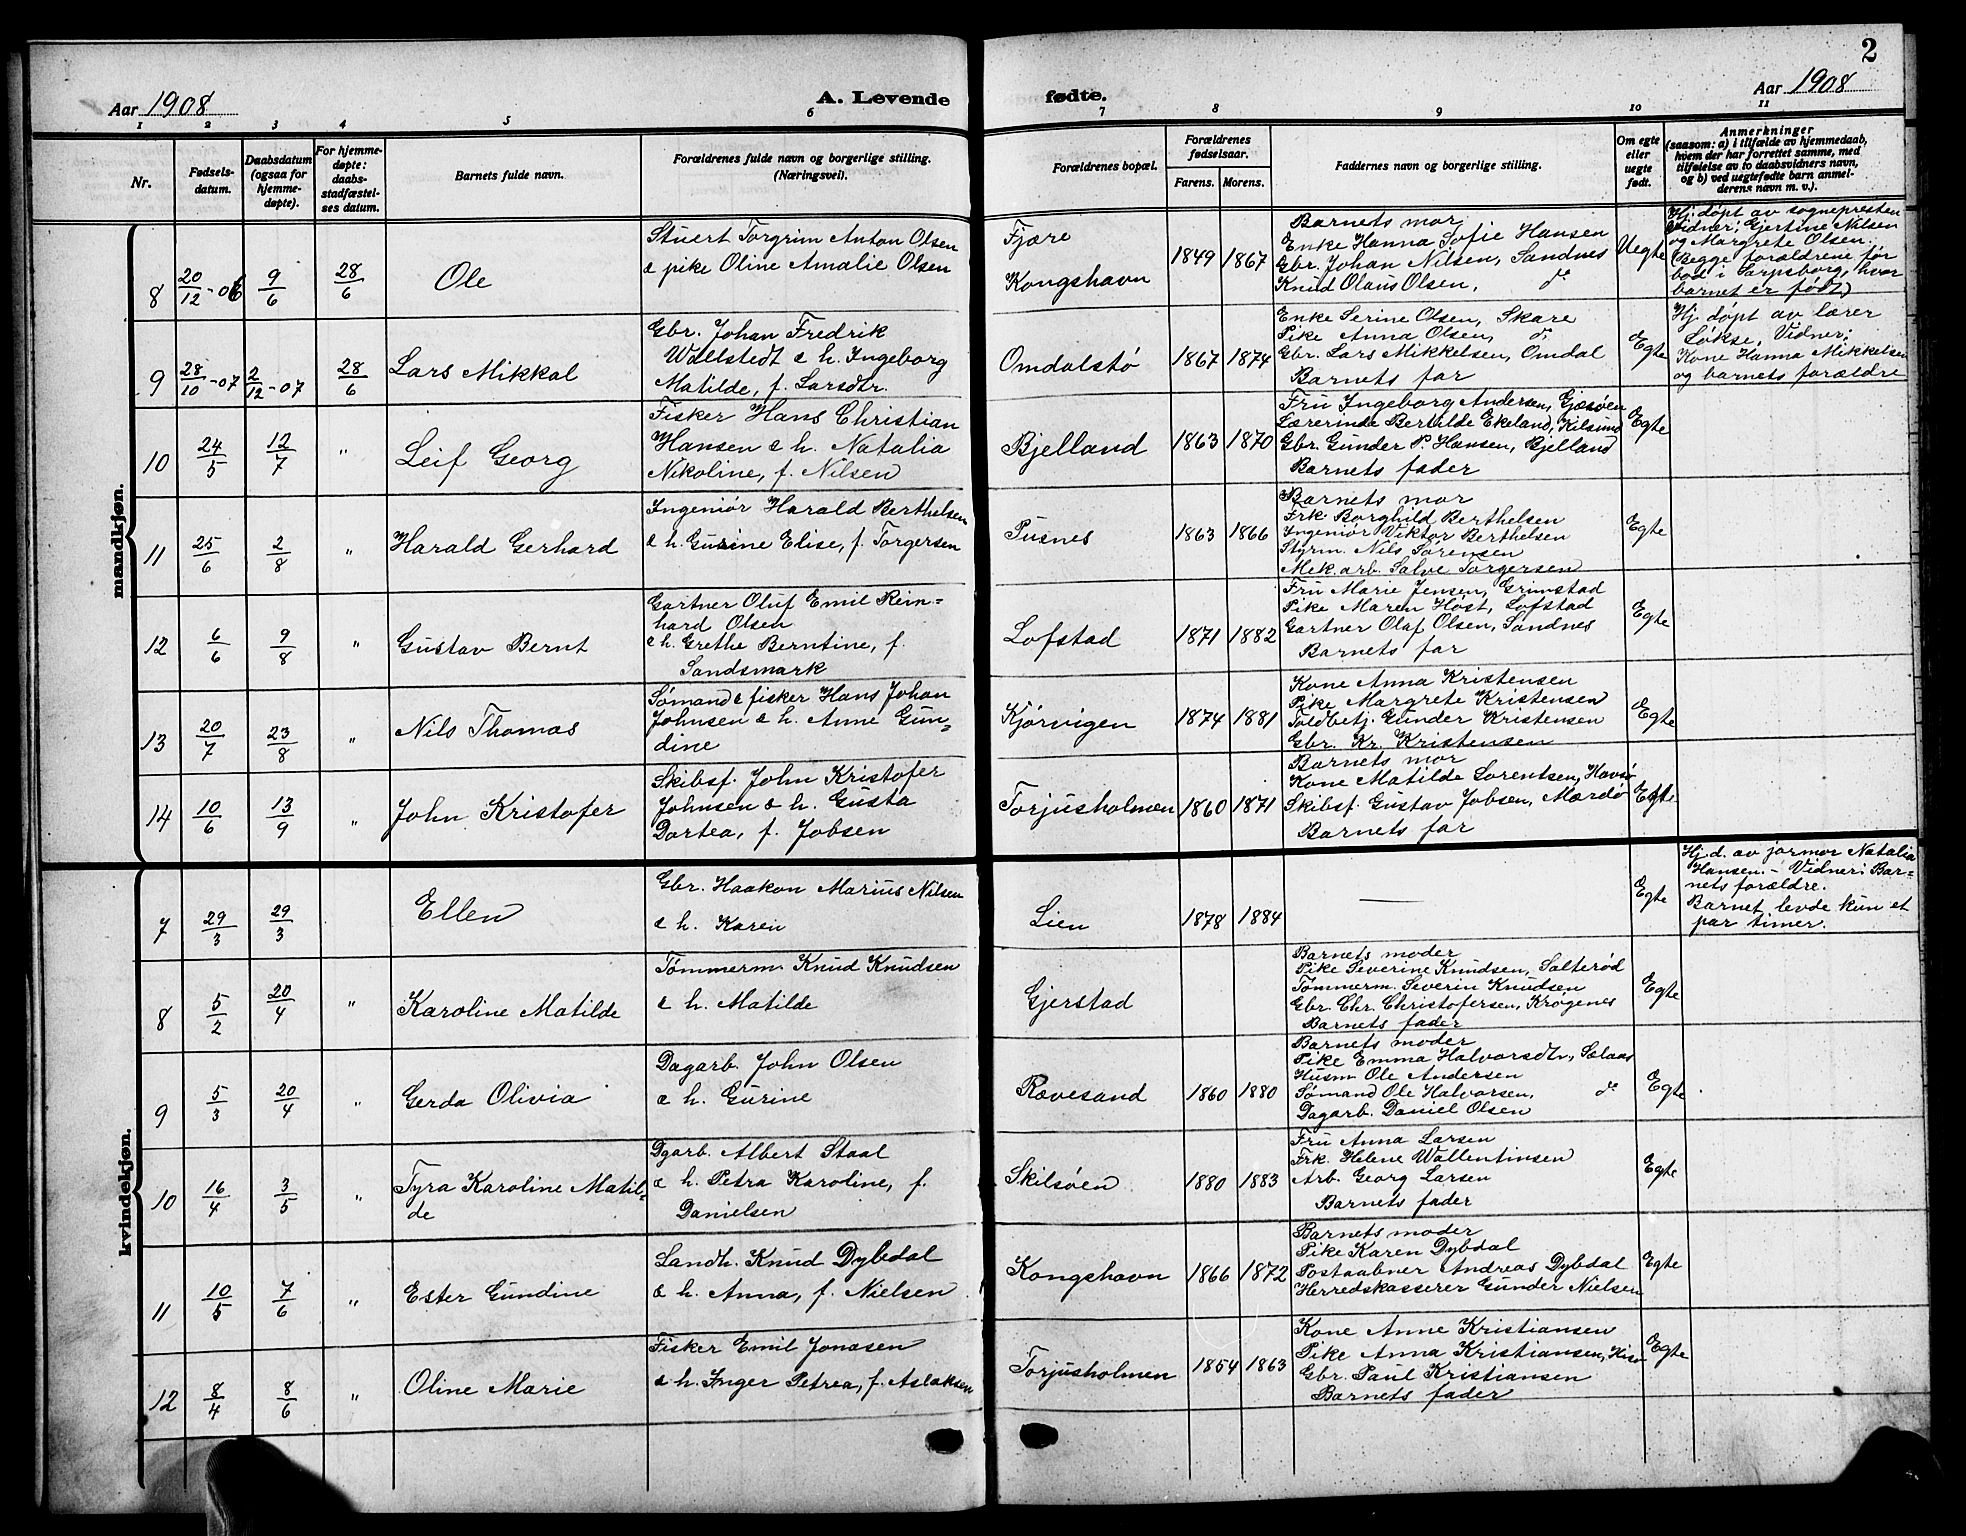 2
Aar 1908
A. Levende
fødte.
Aar 1908
1 2 3 4 5 6 7 8 9 10 11
Nr.
Fødsels-
datum.
Daabsdatum
(ogsaa for
hjemme-
døpte).
For hjemme-
døpte:
daabs-
stadfæstel-
ses datum.
Barnets fulde navn.
Forældrenes fulde navn og borgerlige stilling.
(Næringsvei).
Forældrenes bopæl.
Forældrenes
fødselsaar.
Farens. Morens.
Faddernes navn og borgerlige stilling.
Om egte
eller
uegte
født.
Anmerkninger
(saasom: a) i tilfælde av hjemmedaab,
hvem der har forrettet samme, med
tilføielse av to daabsvidners navn,
og b) ved uegtefødte barn anmel-
derens navn m. v.).
mandkjøn.
8 20/12-06 9/6 28/6 Ole
Stuert Torgrim Anton Olsen
& pike Oline Amalie Olsen
Fjære
Kongshavn
1849 1867
Barnets mor
Enke Hanna Sofie Hansen
Gbr. Johan Nilsen, Sandnes
Knud Olaus Olsen, do
Uegte
Hj. døpt av sognepresten
Vidner: Gjertine Nilsen
og Margrete Olsen.
(Begge forældrene før
bod i Sarpsborg, hvor
barnet er født)
9 28/10-07 2/12-07 28/6 Lars Mikkal
Gbr. Johan Fredrik
Wallstedt & h. Ingeborg
Matilde, f. Larsdtr.
Omdalstø
1867 1874
Enke Serine Olsen, Skare
Pike Anna Olsen, do
Gbr. Lars Mikkelsen, Omdal
Barnets far
Egte
Hj. døpt av lærer
Løkse, Vidner:
Kone Hanna Mikkelsen
og barnets forældre
10 24/5 12/7 " Leif Georg
Fisker Hans Christian
Hansen & h. Natalia
Nikoline, f. Nilsen
Bjelland
1863 1870
Fru Ingeborg Andersen, Gjæsøen
Lærerinde Bertilde Ekeland, Kilsund
Gbr. Gunder P. Hansen, Bjelland
Barnets fader
Egte
11 25/6 2/8 " Harald Gerhard
Ingeniør Harald Berthelsen
& h. Gusine Elise, f. Torgersen
Pusnes
1863 1866
Barnets mor
Frk. Borghild Berthelsen
Ingeniør Viktor Berthelsen
Styrm. Nils Sørensen
Mek. arb. Salve Torgersen
Egte
12 6/6 9/8 " Gustav Bernt
Gartner Oluf Emil Rein-
hard Olsen
& h. Grethe Berntine, f.
Sandsmark
Lofstad
1871 1882
Fru Marie Jensen, Grimstad
Pike Maren Høst, Lofstad
Gartner Olaf Olsen, Sandnes
Barnets far
Egte
13 20/7 23/8 " Nils Thomas
Sømand & fisker Hans Johan
Johnsen & h. Anne Gun-
dine
Kjørvigen
1874 1881
Kone Anna Kristensen
Pike Margrete Kristensen
Toldbetj. Gunder Kristensen
Gbr. Kr. Kristensen
Egte
14 10/6 13/9 " John Kristofer
Skibsf. John Kristofer
Johnsen & h. Gusta
Dortea, f. Jobsen
Torjusholmen
1860 1871
Barnets mor
Kone Matilde Lorentsen, Havsø
Skibsf. Gustav Jobsen, Mærdø
Barnets far
Egte
kvindekjøn.
7 29/3 29/3 Ellen
Gbr. Haakon Marius Nilsen
& h. Karen
Lien
1878 1884
—
Egte
Hj. d. av jormor Natalia
Hansen. – Vidner: Bar-
nets forældre.
Barnet levde kun et
par timer.
8 5/2 20/4 " Karoline Matilde
Tømmerm. Knud Knudsen
& h. Matilde
Gjerstad
Barnets moder
Pike Severine Knudsen, Salterød
Tømmerm. Severin Knudsen
Gbr. Chr. Christofersen, Krøgenes
Barnets fader
Egte
9 5/3 20/4 " Gerda Olivia
Dagarb. John Olsen
& h. Gurine
Rævesand
1860 1880
Barnets moder
Pike Emma Halvorsdtr., Sølaas
Husm. Ole Andersen
Sømand Ole Halvorsen, do
Dagarb. Daniel Olsen
Egte
10 16/4 3/5 " Tyra Karoline Matil-
de
Dgarb. Albert Staal
& h. Petra Karoline, f.
Danielsen
Skilsøen
1880 1883
Fru Anna Larsen
Frk. Helene Wallentinsen
Arb. Georg Larsen
Barnets fader
Egte
11 10/5 7/6 " Ester Gundine
Landh. Knud Dybdal
& h. Anna, f. Nielsen
Kongshavn
1866 1872
Barnets moder
Pike Karen Dybdal
Postaabner Andreas Dybdal
Herredskasserer Gunder Nielsen
Egte
12 8/4 8/6 " Oline Marie
Fisker Emil Jonasen
& h. Inger Petrea, f. Aslaksen
Torjusholmen
1854 1863
Kone Anne Kristiansen
Pike Anna Kristiansen, Hisø
Gbr. Paul Kristiansen
Barnets fader
Egte